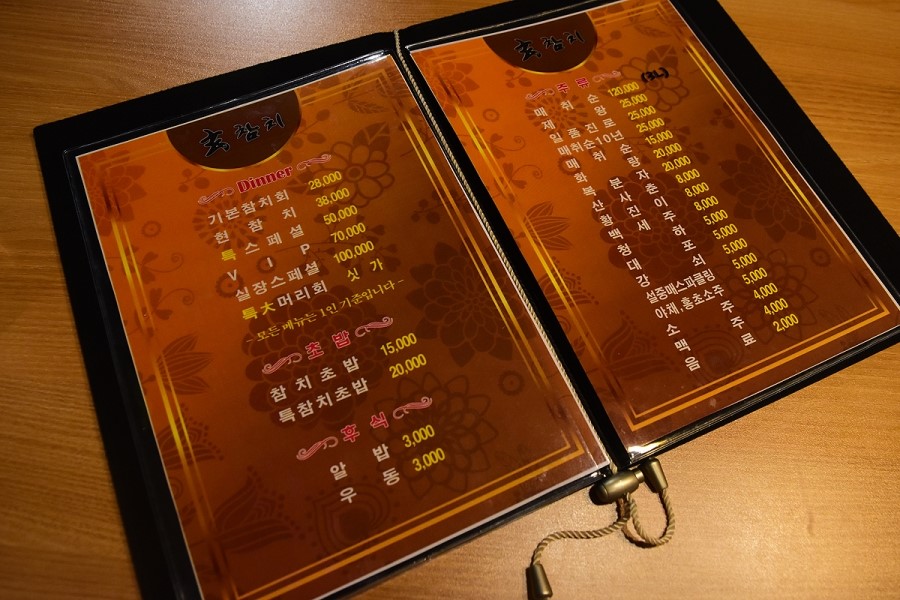 玄참치
Dinner
기본참치회 28,000
현참치 38,000
특스페셜 50,000
VIP 70,000
실장스페셜 100,000
특大머리회 싯가
~모든 메뉴는 1인 기준입니다~
초밥
참치초밥 15,000
특참치초밥 20,000
후식
알밥 3,000
우동 3,000
玄참치
주류
매취순 120,000 (3L)
제왕 25,000
일품진로 25,000
매취순10년 25,000
매취순 15,000
화랑 20,000
복분자 20,000
산사춘 8,000
황진이 8,000
백세주 8,000
청하 5,000
대포 5,000
강쇠 5,000
설중매스파클링 5,000
야채,홍초소주 5,000
소주 4,000
맥주 4,000
음료 2,000